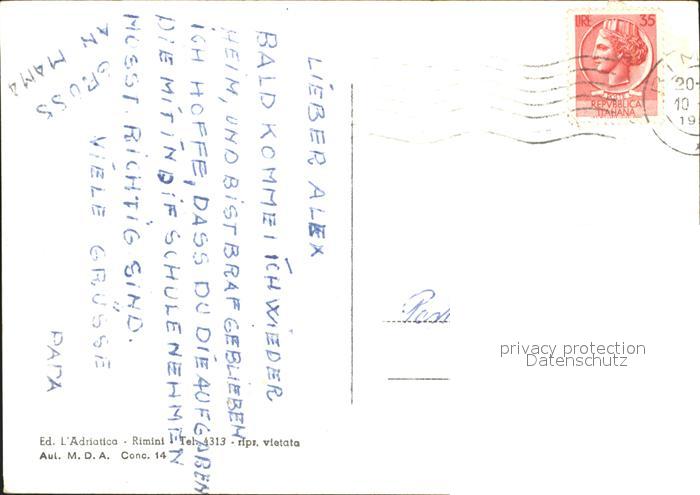 LIEBER ALEX
BALD KOMME ICH WIEDER
HEIM, UND BIST BRAF GEBLIEBEN
ICH HOFFE, DASS DU DIE AUFGABEN
DIE MIT IN DIE SCHULE NEHMEN
MUSST RICHTIG SIND.
VIELE GRÜSSE
PAPA
GRUSS
MAMA
LIRE 35
POSTE
REPVBBLICA
ITALIANA
20-
10
19
privacy protection
Datenschutz
Ed. L'Adriatica - Rimini - Tel. 4313 - ripr. vietata
Aut. M. D. A. Conc. 14